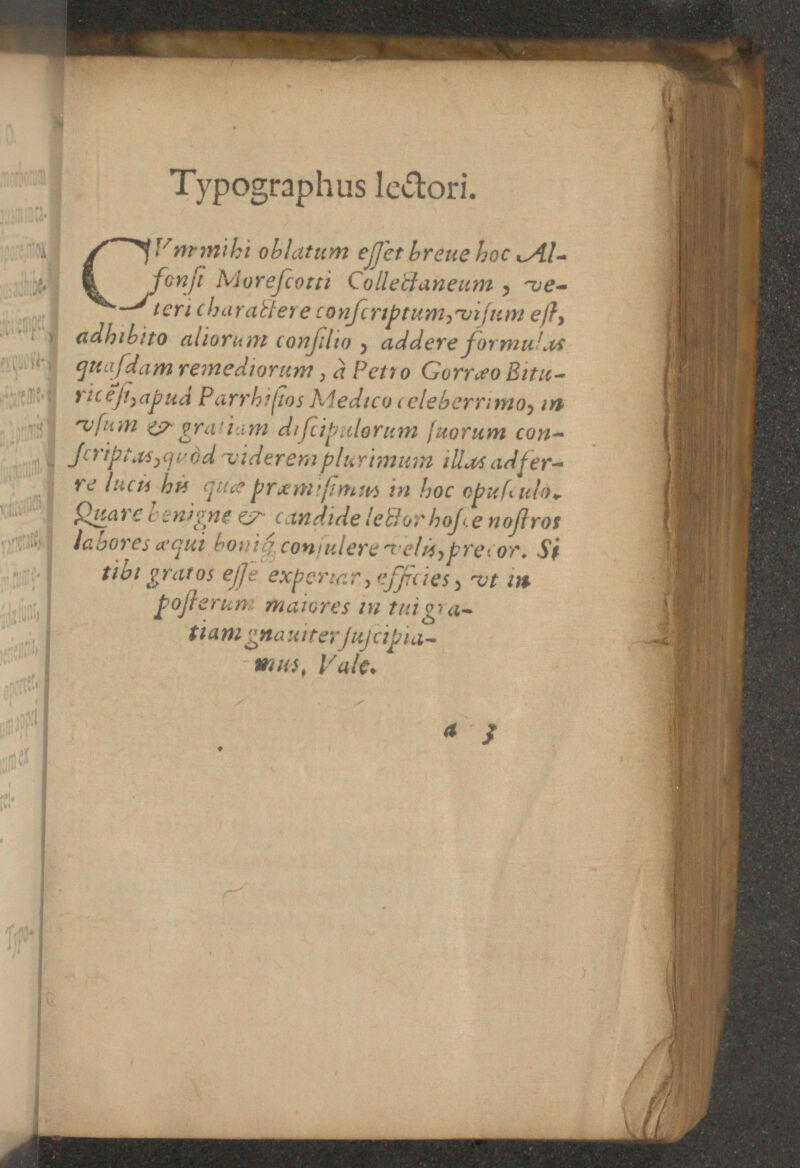 Typographus lectori.
CVm mihi oblatum esset breue hoc Al-
fonsi Morescotti Collectaneum, ve-
teri charactere conscriptum, visum est,
adhibito aliorum consilio, addere formulas
quasdam remediorum, à Petro Gorræo Bitu-
ricẽsi, apud Parrhisios Medico celeberrimo, in
vsum & gratiam discipulorum suorum con-
scriptas, quòd viderem plurimum illas adfer-
re lucis his quæ præmisimus in hoc opusculo.
Quare benigne & candide lector hosce nostros
labores æqui boniq́; consulere velis, precor. Si
tibi gratos esse experiar, efficies, vt in
posterum maiores in tui gra-
tiam gnauiter suscipia-
mus, Vale.
a 3
Typo-